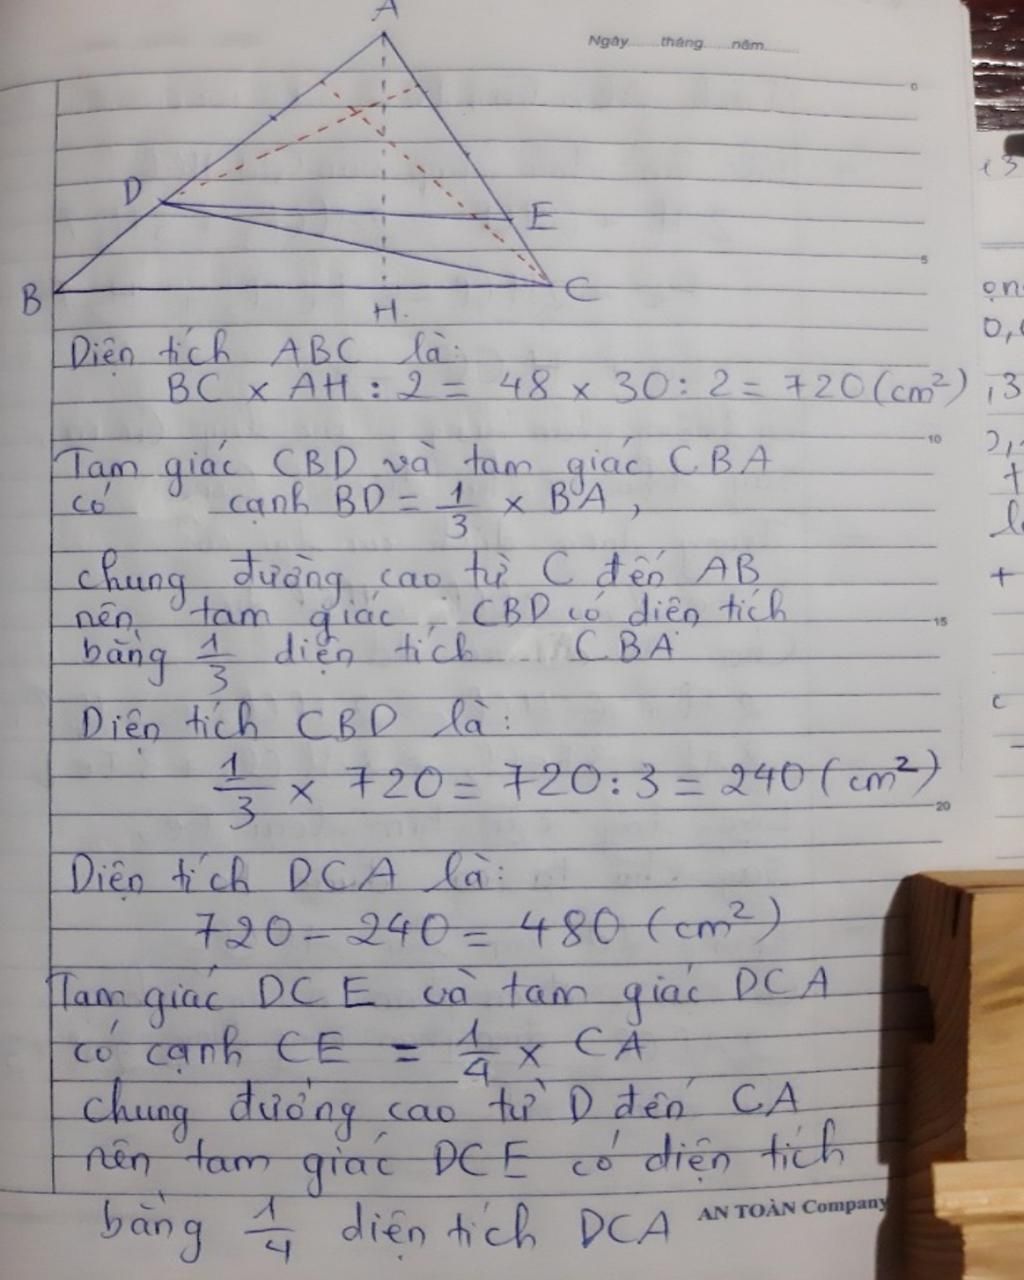 A
Ngày......tháng......năm.........
0
D
E
5
B
C
H.
Diện tích ABC là:
BC x AH : 2 = 48 x 30 : 2 = 720 (cm²)
10
Tam giác CBD và tam giác CBA
có cạnh BD = 1/3 x BA,
chung đường cao từ C đến AB
nên tam giác CBD có diện tích
15
bằng 1/3 diện tích CBA
Diện tích CBD là:
1/3 x 720 = 720 : 3 = 240 (cm²)
20
Diện tích DCA là:
720 - 240 = 480 (cm²)
Tam giác DCE và tam giác DCA
có cạnh CE = 1/4 x CA
chung đường cao từ D đến CA
nên tam giác DCE có diện tích
bằng 1/4 diện tích DCA
AN TOÀN Company